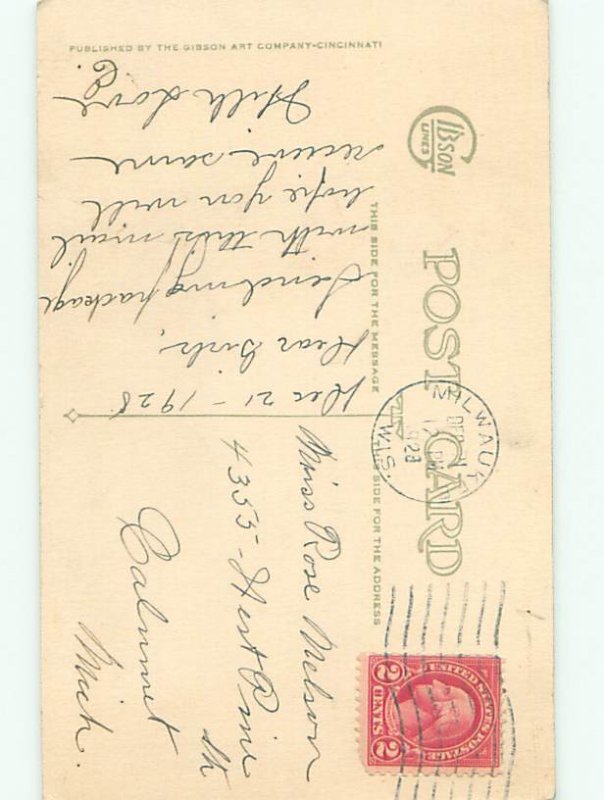 PUBLISHED BY THE GIBSON ART COMPANY-CINCINNATI
GIBSON
LINES
POST CARD
THIS SIDE FOR THE MESSAGE
THIS SIDE FOR THE ADDRESS
MILWAUK
WIS.
1928
UNITED STATES POSTAGE
2 CENTS 2
Dec 21 - 1928
Dear Girls,
Sending package
with this mail
hope you will
receive same
With Love
C.
Miss Rose Melson
4355 - Hest Pine
St
Calumet
Mich.